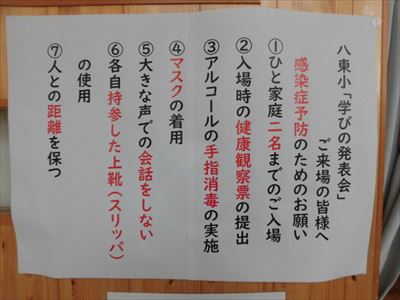 八東小「学びの発表会」
ご来場の皆様へ
感染症予防のためのお願い
①ひと家庭二名までのご入場
②入場時の健康観察票の提出
③アルコールの手指消毒の実施
④マスクの着用
⑤大きな声での会話をしない
⑥各自持参した上靴(スリッパ)
の使用
⑦人との距離を保つ